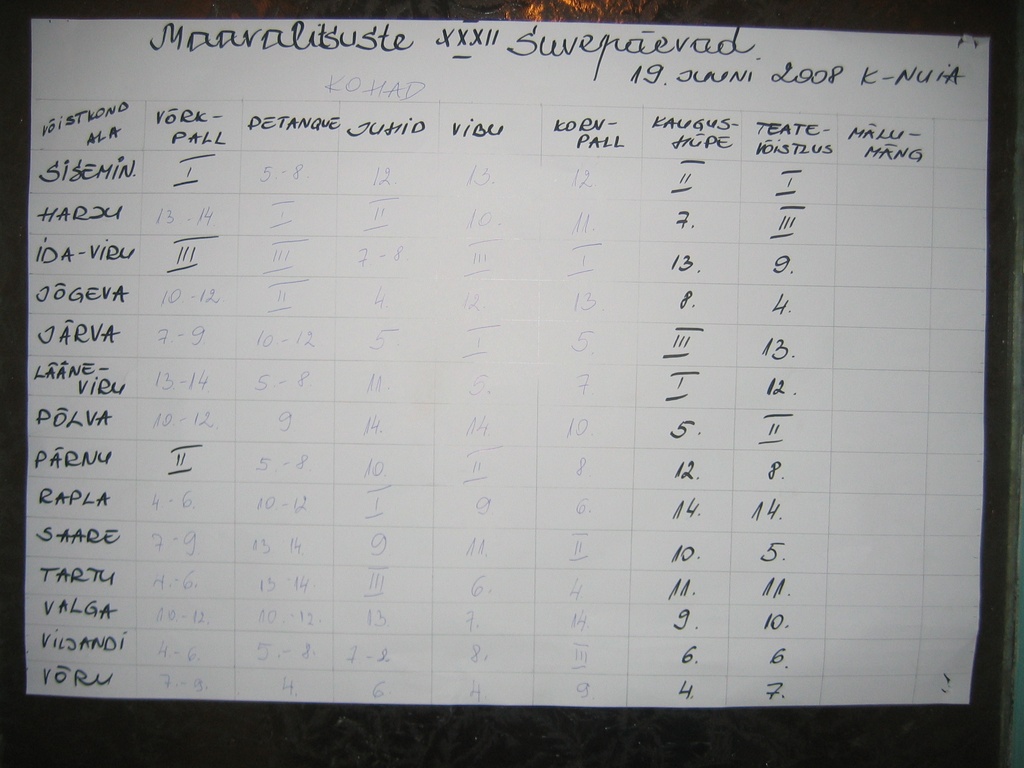 Maavalitsuste XXXII Suvepäevad
19. JUUNI 2008 K-NUIA
KOHAD
VÕISTKOND ALA VÕRK-PALL PETANQUE JUHID VIBU KORV-PALL KAUGUS-HÜPE TEATE-VÕISTLUS MÄLU-MÄNG
SISEMIN. I 5.-8. 12. 13. 12 II I
HARJU 13-14 I II 10. 11. 7. III
IDA-VIRU III III 7-8. III I 13. 9.
JÕGEVA 10.-12. II 4. 12. 13. 8. 4.
JÄRVA 7.-9. 10-12 5. I 5. III 13.
LÄÄNE-VIRU 13-14. 5.-8 11. 5. 7. I 12.
PÕLVA 10.-12. 9 14. 14. 10. 5. II
PÄRNU II 5.-8 10. II 8. 12. 8.
RAPLA 4-6. 10-12 I 9 6. 14. 14.
SAARE 7-9. 13-14. 9 11. II 10. 5.
TARTU 4.-6. 13-14. III 6. 4 11. 11.
VALGA 10.-12. 10.-12. 13. 7. 14. 9. 10.
VILJANDI 4-6. 5.-8. 7-8 8. III 6. 6.
VÕRU 7.-9. 4. 6 4. 9. 4. 7.